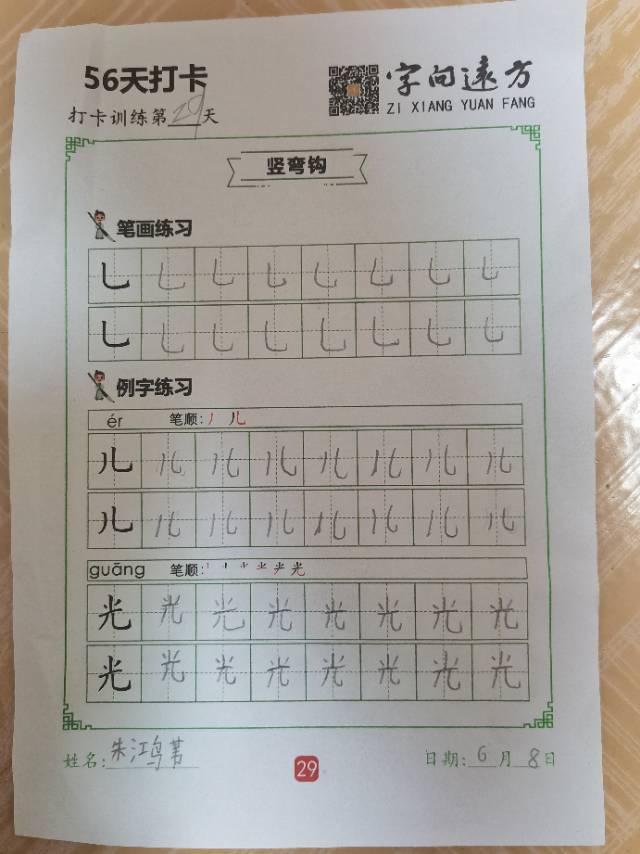 56天打卡
字向遠方
ZI XIANG YUAN FANG
打卡训练第29天
竖弯钩
笔画练习
乚乚乚乚乚乚乚乚
乚乚乚乚乚乚乚乚
例字练习
ér 笔顺:丿 儿
儿儿儿儿儿儿儿儿
儿儿儿儿儿儿儿儿
guāng 笔顺:
光光光光光光光光
光光光光光光光光
姓名:朱鸿
29
日期:6月8日